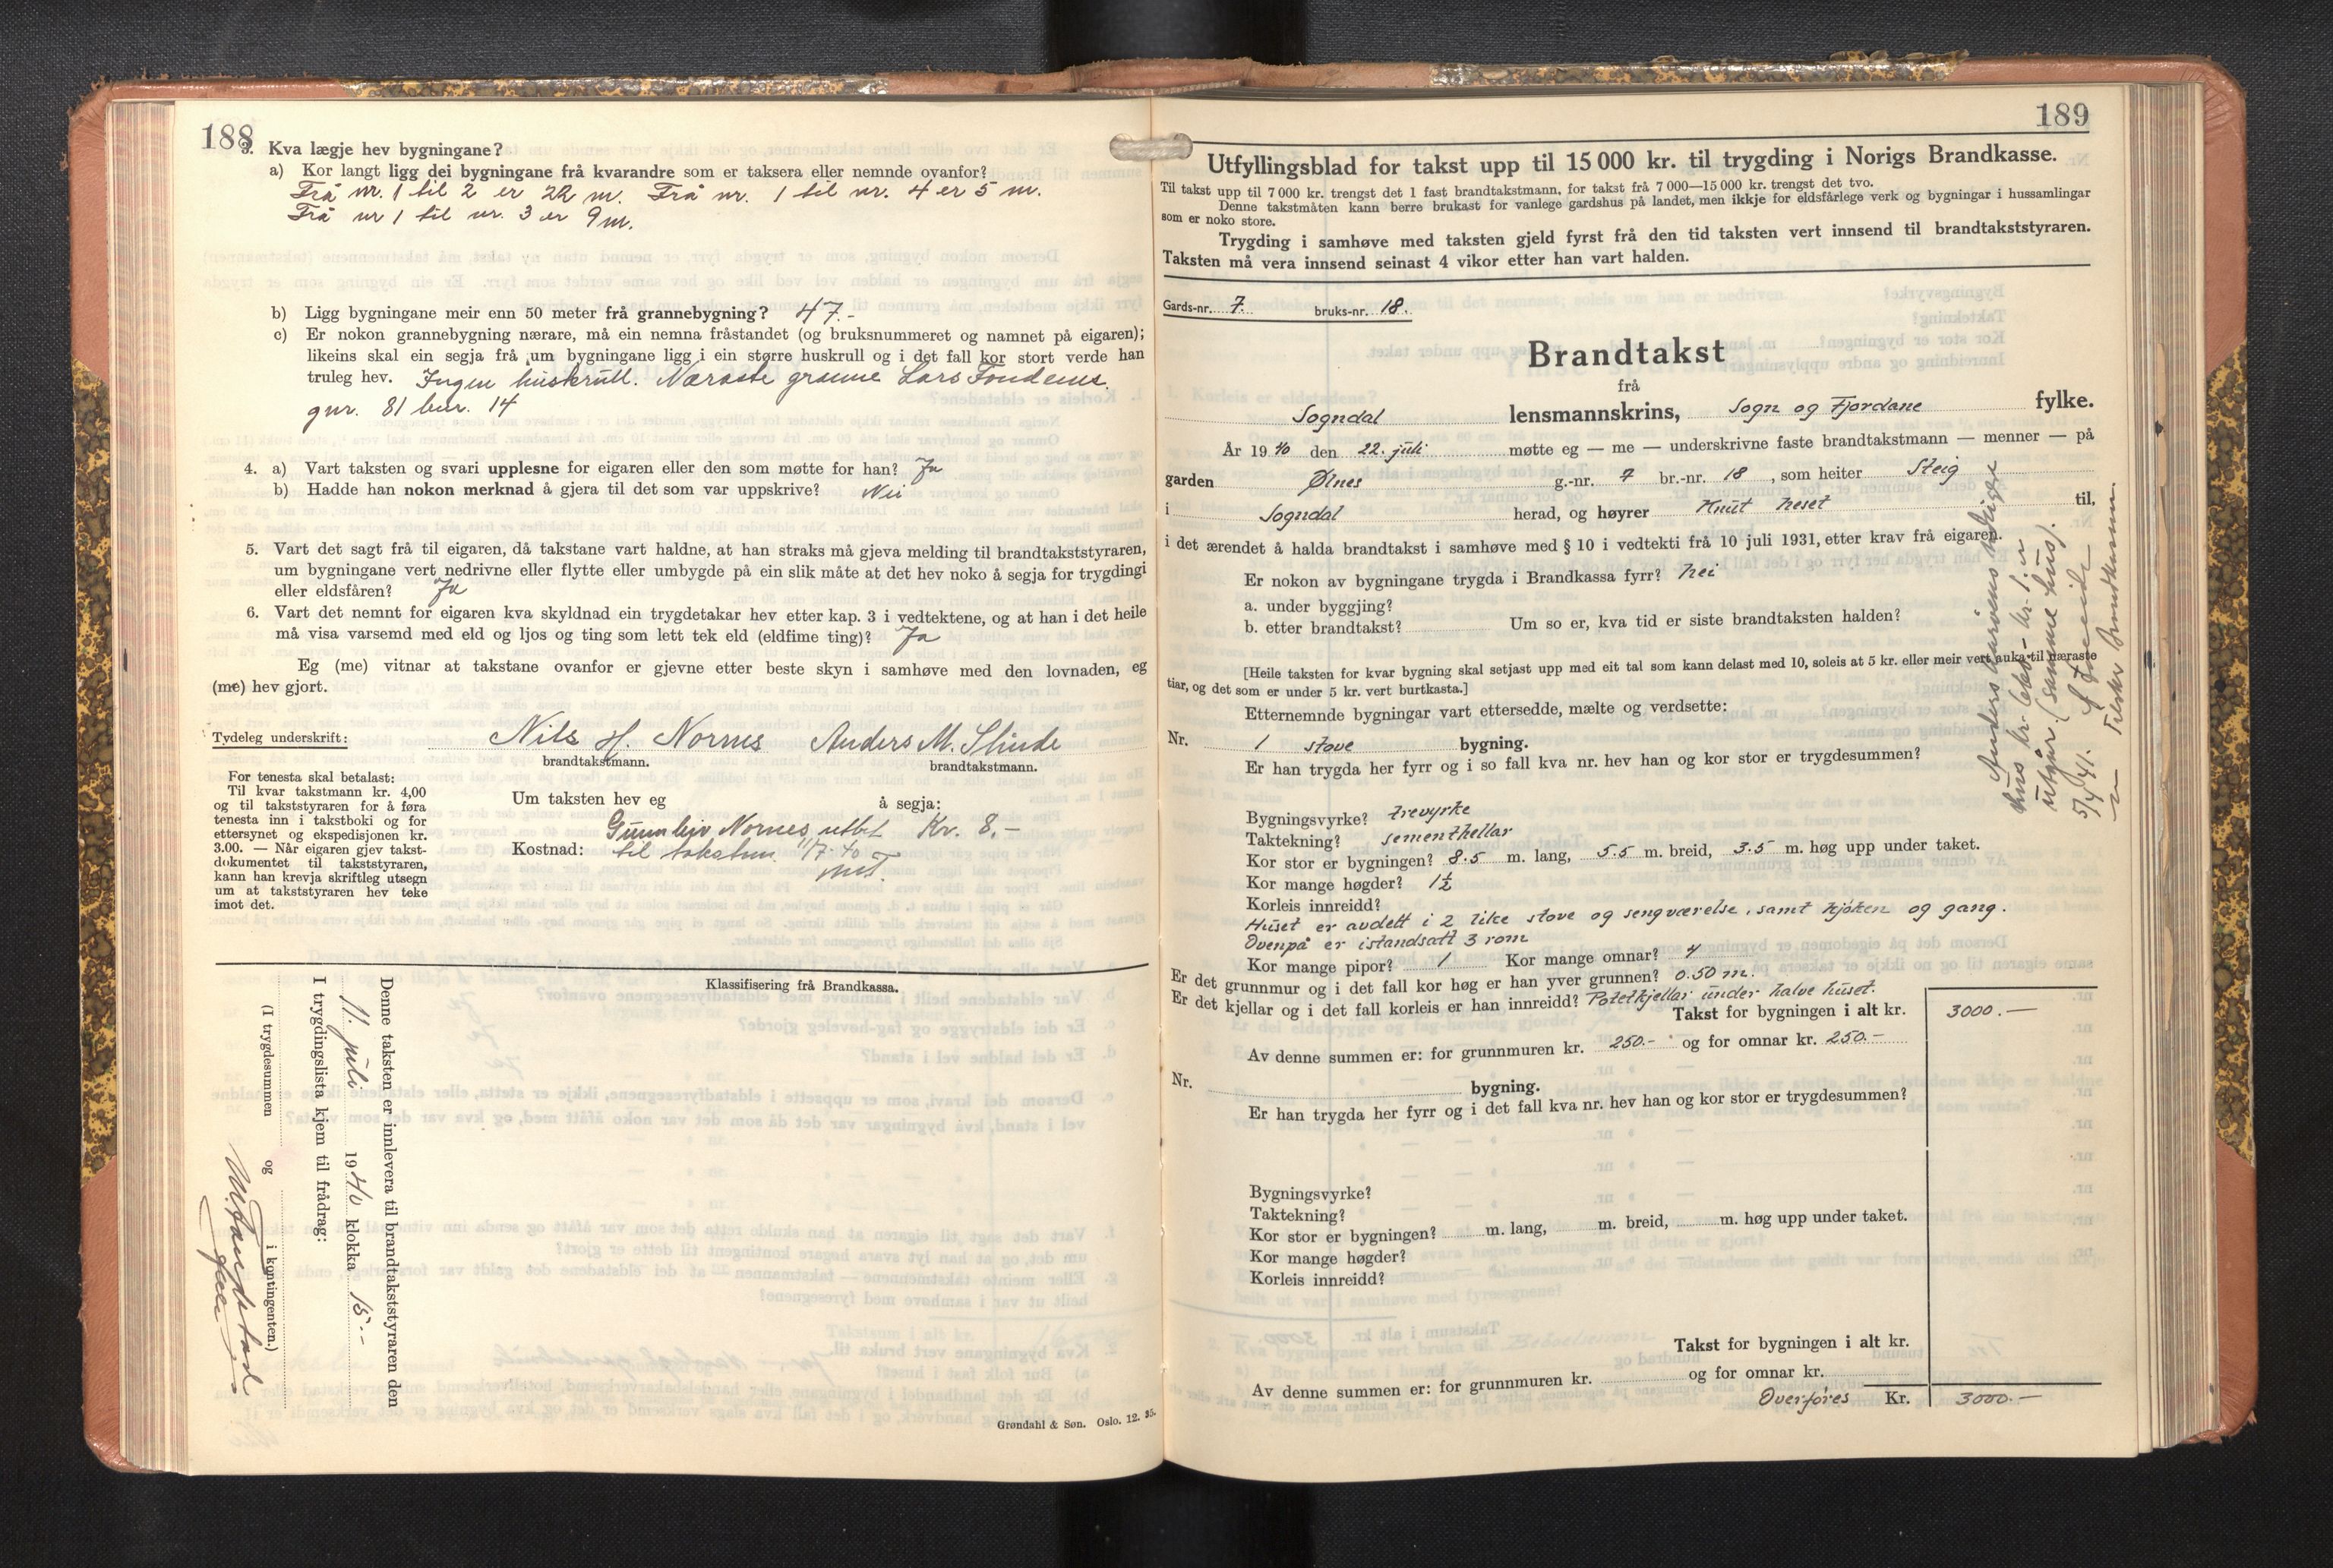 188
3. Kva lægje hev bygningane?
a) Kor langt ligg dei bygningane frå kvarandre som er taksera eller nemnde ovanfor?
Frå nr. 1 til 2 er 22 m. Frå nr. 1 til nr. 4 er 5 m.
Frå nr 1 til nr. 3 er 9 m.
b) Ligg bygningane meir enn 50 meter frå grannebygning? 47.-
c) Er nokon grannebygning nærare, må ein nemna fråstandet (og bruksnummeret og namnet på eigaren);
likeins skal ein segja frå um bygningane ligg i ein større huskrull og i det fall kor stort verde han
truleg hev. Ingen huskrull. Næraste granne Lars Fondenes.
gnr. 81 bnr. 14
4. a) Vart taksten og svari upplesne for eigaren eller den som møtte for han? Ja
b) Hadde han nokon merknad å gjera til det som var uppskrive? Nei
5. Vart det sagt frå til eigaren, då takstane vart haldne, at han straks må gjeva melding til brandtakststyraren,
um bygningane vert nedrivne eller flytte eller umbygde på ein slik måte at det hev noko å segja for trygdingi
eller eldsfåren? Ja
6. Vart det nemnt for eigaren kva skyldnad ein trygdetakar hev etter kap. 3 i vedtektene, og at han i det heile
må visa varsemd med eld og ljos og ting som lett tek eld (eldfime ting)? Ja
Eg (me) vitnar at takstane ovanfor er gjevne etter beste skyn i samhøve med den lovnaden, eg
(me) hev gjort.
Tydeleg underskrift: Nils H. Nornes Anders M. Slinde
brandtakstmann. brandtakstmann.
For tenesta skal betalast:
Til kvar takstmann kr. 4,00
og til takststyraren for å føra
tenesta inn i takstboki og for
ettersynet og ekspedisjonen kr.
3.00. — Når eigaren gjev takst-
dokumentet til takststyraren,
kann han krevja skriftleg utsegn
um at takststyraren hev teke
imot det.
Um taksten hev eg å segja:
Gunnleiv Nornes utbet Kr. 8.-
Kostnad: til takstm. 11/7-40
Klassifisering frå Brandkassa.
Denne taksten er innlevera til brandtakststyraren den
11. juli 1940 klokka 15.-
I trygdingslista kjem til frådrag:
(I trygdesummen og i kontingenten.)
Grøndahl & Søn. Oslo. 12. 35.
189
Utfyllingsblad for takst upp til 15 000 kr. til trygding i Norigs Brandkasse.
Til takst upp til 7 000 kr. trengst det 1 fast brandtakstmann, for takst frå 7 000—15 000 kr. trengst det tvo.
Denne takstmåten kann berre brukast for vanlege gardshus på landet, men ikkje for eldsfårlege verk og bygningar i hussamlingar
som er noko store.
Trygding i samhøve med taksten gjeld fyrst frå den tid taksten vert innsend til brandtakststyraren.
Taksten må vera innsend seinast 4 vikor etter han vart halden.
Gards-nr. 7. bruks-nr. 18.
Brandtakst
frå
Sogndal lensmannskrins, Sogn og Fjordane fylke.
År 1940 den 22. juli møtte eg — me — underskrivne faste brandtakstmann — menner — på
garden Ølnes g.-nr. 7 br.-nr. 18, som heiter Steig
i Sogndal herad, og høyrer Knut Neset til,
i det ærendet å halda brandtakst i samhøve med § 10 i vedtekti frå 10 juli 1931, etter krav frå eigaren.
Er nokon av bygningane trygda i Brandkassa fyrr? Nei
a. under byggjing?
b. etter brandtakst? Um so er, kva tid er siste brandtaksten halden?
[Heile taksten for kvar bygning skal setjast upp med eit tal som kann delast med 10, soleis at 5 kr. eller meir vert auka til næraste
tiar, og det som er under 5 kr. vert burtkasta.]
Etternemnde bygningar vart ettersedde, mælte og verdsette:
Nr. 1 stove bygning.
Er han trygda her fyrr og i so fall kva nr. hev han og kor stor er trygdesummen?
Bygningsvyrke? trevyrke
Taktekning? sementhellar
Kor stor er bygningen? 8.5 m. lang, 5.5 m. breid, 3.5 m. høg upp under taket.
Kor mange høgder? 1½
Korleis innreidd?
Huset er avdelt i 2 like stove og sengværelse, samt kjøken og gang.
Ovenpå er istandsatt 3 rom
Kor mange pipor? 1 Kor mange omnar? 4
Er det grunnmur og i det fall kor høg er han yver grunnen? 0.50 m.
Er det kjellar og i det fall korleis er han innreidd? Potetkjellar under halve huset.
Takst for bygningen i alt kr. 3000.—
Av denne summen er: for grunnmuren kr. 250.- og for omnar kr. 250.-
Nr. bygning.
Er han trygda her fyrr og i det fall kva nr. hev han og kor stor er trygdesummen?
Bygningsvyrke?
Taktekning?
Kor stor er bygningen? m. lang, m. breid, m. høg upp under taket.
Kor mange høgder?
Korleis innreidd?
Takst for bygningen i alt kr.
Av denne summen er: for grunnmuren kr. og for omnar kr.
Overføres Kr. 3000.—
utgår. (samme hus).
5/4 41.